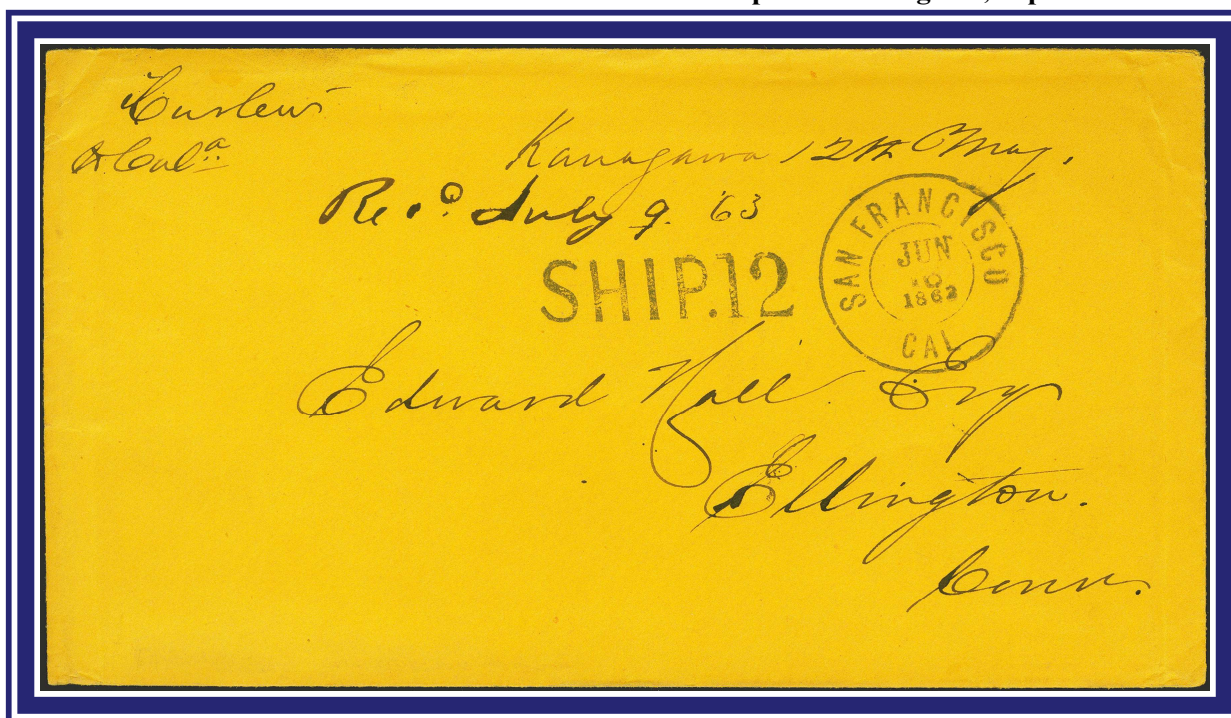 Curlew
& Cal.a
Kanagawa 12th May.
Rec.d July 9. 63
SHIP.12
SAN FRANCISCO
JUN
1862
CAL
Edward Hall Esq
Ellington.
Conn.